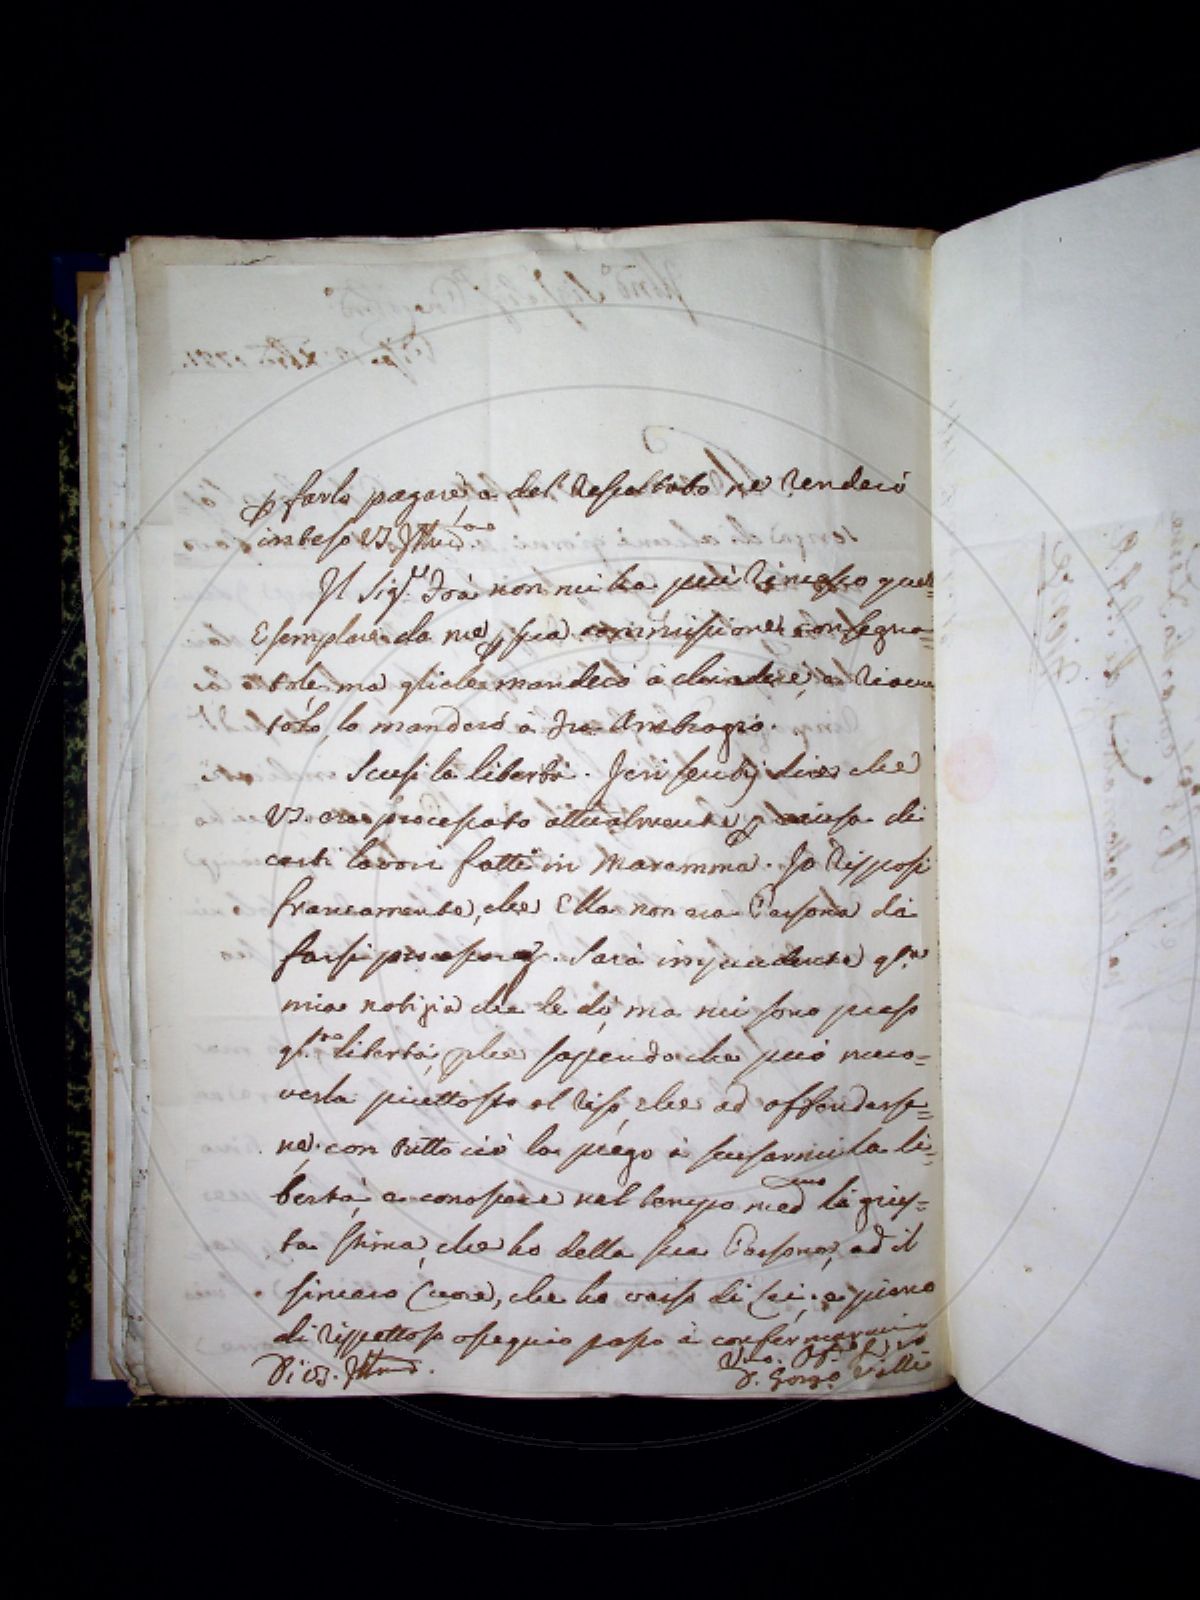 p farlo pagare, e del resultato ne renderò
inteso VS. Illma
Il Sig.r Drà non mi ha più rimesso quel=
Esemplare da me p sua commissione consegna=
tole, ma glielo manderò à chiedere, e riceu
tolo, lo manderò à Fra Ambrogio.
Scusi la libertà. Jeri sentij dire che
VS. era processato attualmente p causa di
certi lavori fatti in Maremma. Io risposi
francamente, che Ella non era Persona da
farsi processare. Sarà imprudente q.ta
mia notizia che le dò, ma mi sono preso
q.ta libertà, p che sapendo che può muo=
verla piuttosto al riso, che ad offenderse=
ne, con tutto ciò la prego à scusarmi la li=
bertà, e conoscere nel tempo med.mo la gius=
ta stima, che ho della sua Persona, ed il
sincero Cuore, che ho verso di Lei, e pieno
di rispettoso ossequio passo à confermarmi
Di VS. Illma
D. Gonzo Valli